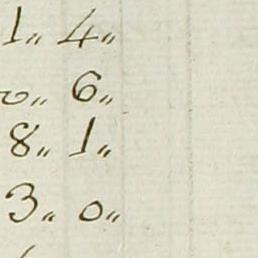 1„ 4„
0„ 6„
8„ 1„
3„ 0„